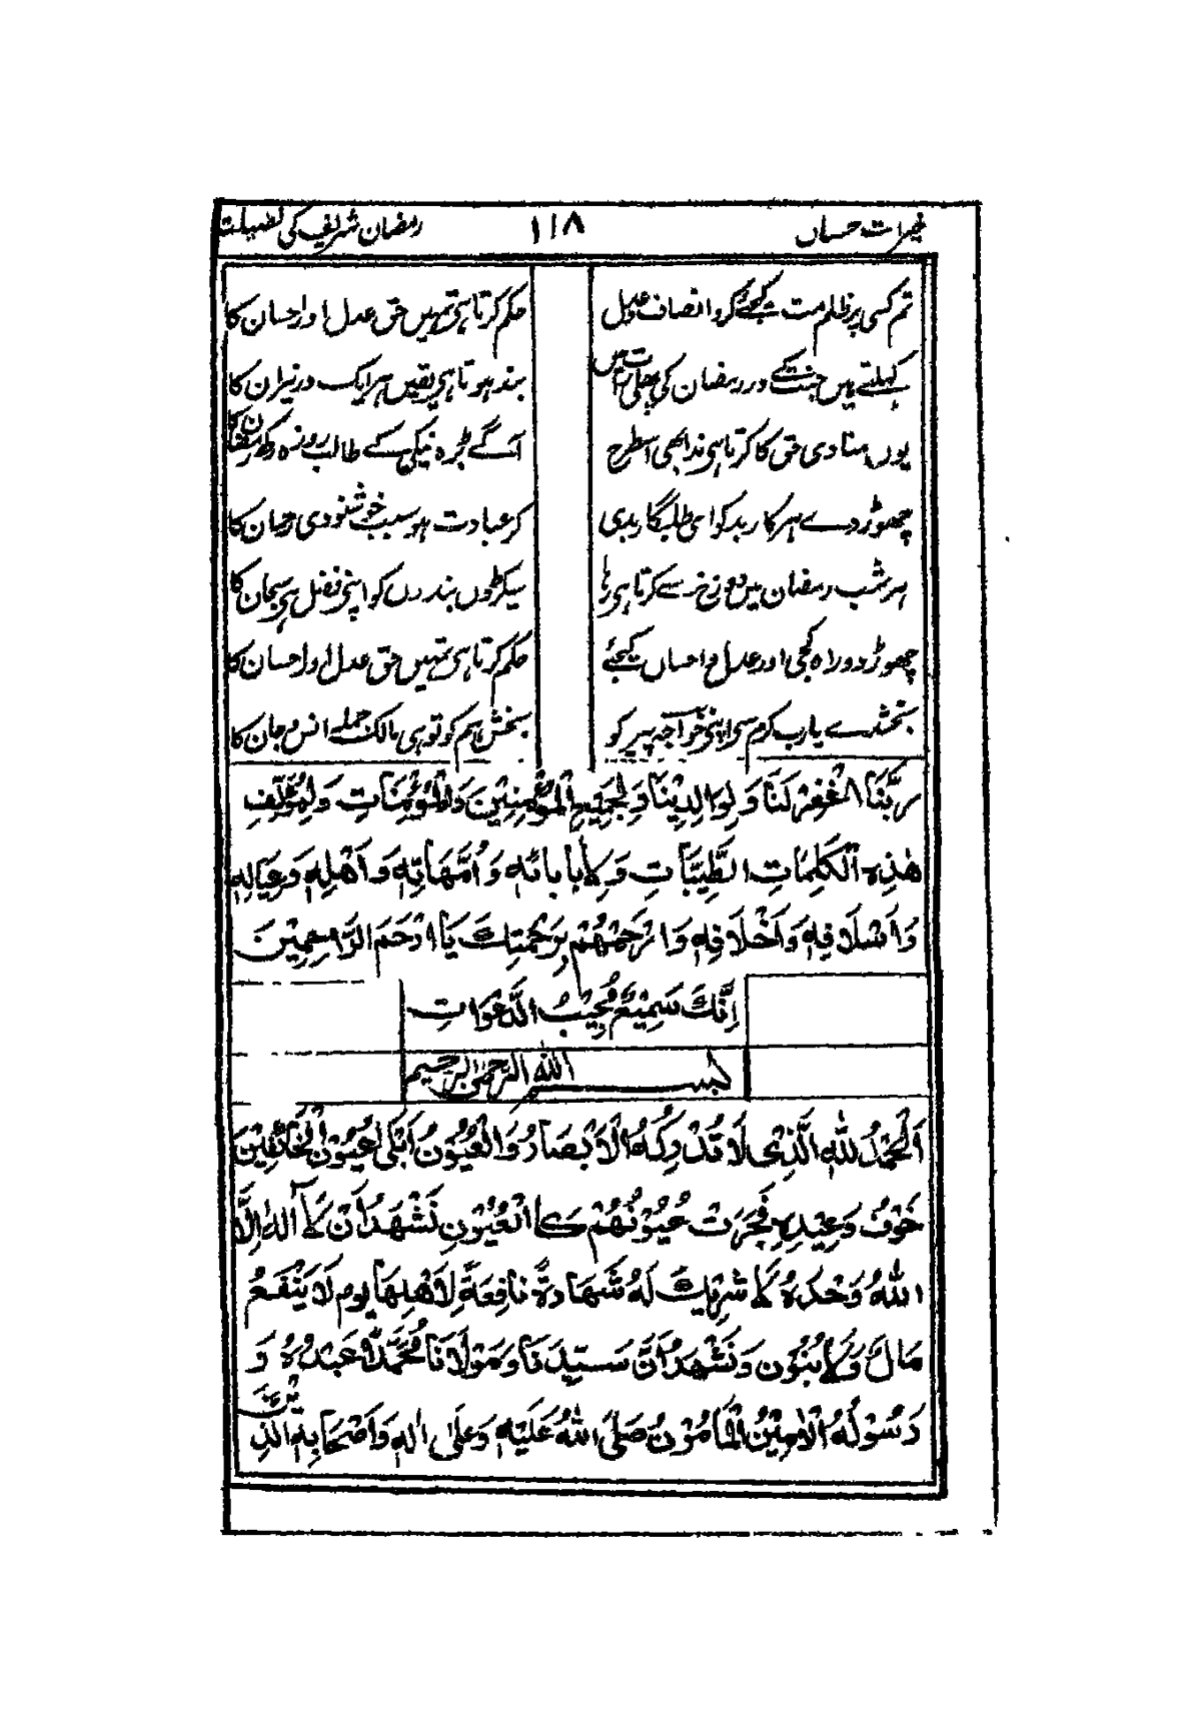 خیرات حساں ۱۱۸ رمضان شریف کی فضیلت
تم کسی پر ظلم مت کیجئے کرو انصاف و عدل حکم کرتا ہی تمہیں حق عدل اور احسان کا
کہلتے ہیں جنت کے در رمضان کی پہلی رات میں بند ہوتا ہی یقیں ہر ایک در نیران کا
یوں منادی حق کا کرتا ہی ندا بھی اسطرح آگے بڑہ نیکی کے طالب روزہ رکھ رمضان کا
چھوڑ دے ہر کار بد کو ای طلبگار بدی کر عبادت ہو سبب خوشنودی رحمان کا
ہر شب رمضان میں دوزخ سے کرتا ہی رہا سیکڑوں بندوں کو اپنی فضل ہی سبحان کا
چھوڑ دو راہ کجی اور عدل و احساں کیجئے حکم کرتا ہی تمہیں حق عدل اور احسان کا
بخشدے یارب کرم سی اپنی خواجہ پیر کو بخش ہم کو تو ہی مالک جملے انس و جان کا
رَبَّنَا اغْفِرْ لَنَا وَلِوَالِدِيْنَا وَلِجَمِيْعِ الْمُؤْمِنِيْنَ وَالْمُؤْمِنَاتِ وَلِمُؤَلِّفِ
هٰذِهِ الْكَلِمَاتِ الطَّيِّبَاتِ وَلِاٰبَائِهٖ وَاُمَّهَاتِهٖ وَاَهْلِهٖ وَعِيَالِهٖ
وَاَسْلَافِهٖ وَاَخْلَافِهٖ وَارْحَمْهُمْ بِرَحْمَتِكَ يَا اَرْحَمَ الرَّاحِمِيْنَ
اِنَّكَ سَمِيْعٌ مُجِيْبُ الدَّعَوَاتِ
بسم الله الرحمن الرحيم
اَلْحَمْدُ لِلّٰهِ الَّذِىْ لَا تُدْرِكُهُ الْاَبْصَارُ وَالْعُيُوْنُ اَبْكٰى عُيُوْنَ الْخَائِفِيْنَ
خَوْفُ وَعِيْدِهٖ فَجَرَتْ عُيُوْنُهُمْ كَالْعُيُوْنِ نَشْهَدُ اَنْ لَا اِلٰهَ اِلَّا
اللّٰهُ وَحْدَهُ لَا شَرِيْكَ لَهُ شَهَادَةً نَافِعَةً لِاَهْلِهَا يوم لَا يَنْفَعُ
مَالٌ وَلَا بَنُوْنَ وَنَشْهَدُ اَنَّ سَيِّدَنَا وَمَوْلَانَا مُحَمَّدًا عَبْدُهُ وَ
رَسُوْلُهُ الْاَمِيْنُ الْمَامُوْنُ صَلَّى اللّٰهُ عَلَيْهِ وَعَلٰى اٰلِهٖ وَاَصْحَابِهِ الَّذِيْنَ